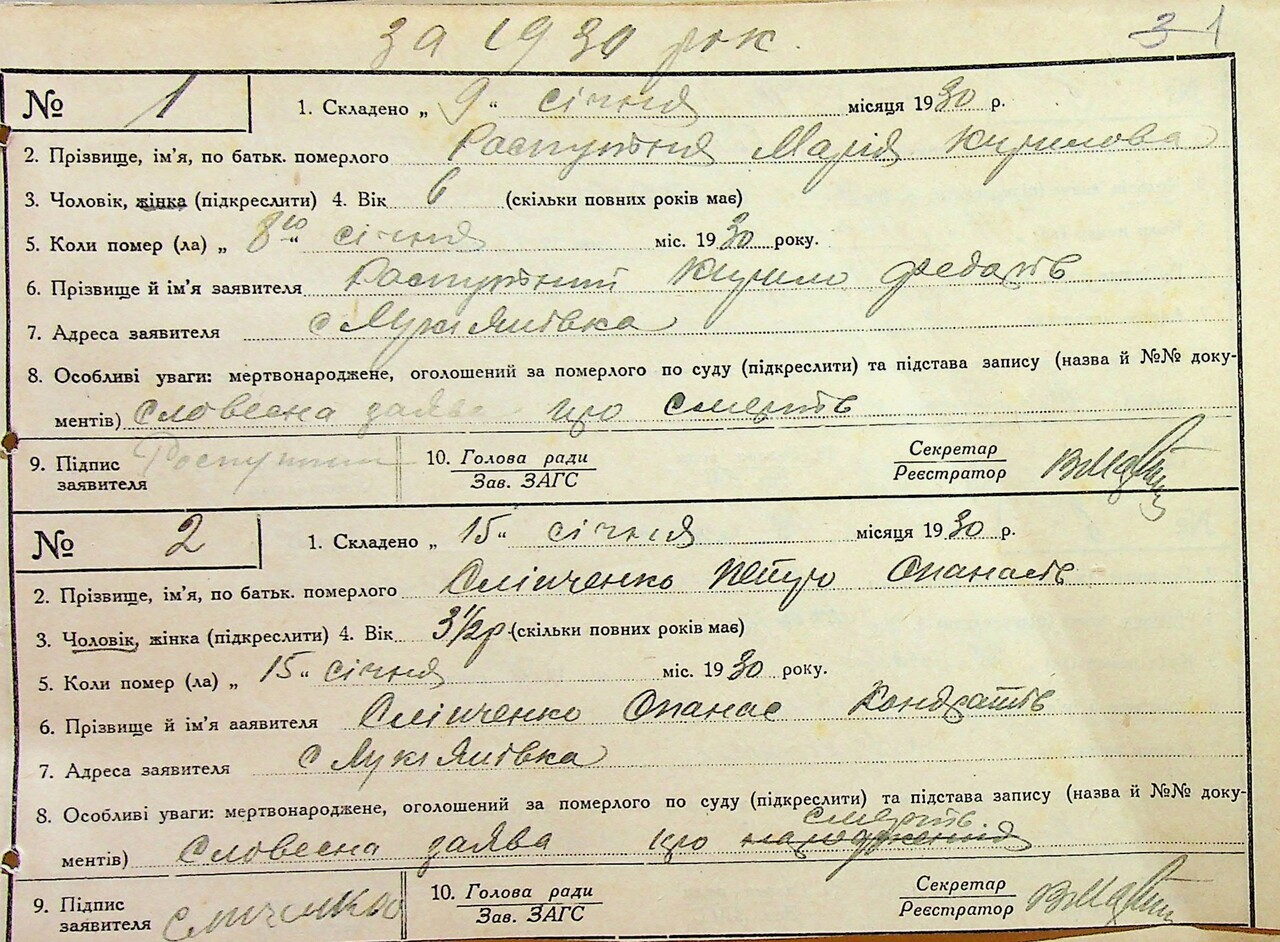 за 1930 рок.
3 1
№ 1 1. Складено „ 9 “ січня місяця 1930 р.
2. Прізвище, ім'я, по батьк. померлого Распутня Марія Кирилова
3. Чоловік, жінка (підкреслити) 4. Вік 6 (скільки повних років має)
5. Коли помер (ла) „ 8го “ січня міс. 1930 року.
6. Прізвище й ім'я заявителя Распутний Кирило Федотів
7. Адреса заявителя с Лукіянівка
8. Особливі уваги: мертвонароджене, оголошений за померлого по суду (підкреслити) та підстава запису (назва й №№ доку-
ментів) Словесна заява про смерть
9. Підпис заявителя Распутний 10. Голова ради Зав. ЗАГС Секретар Реєстратор
№ 2 1. Складено „ 15 “ січня місяця 1930 р.
2. Прізвище, ім'я, по батьк. померлого Сліпченко Петро Опанасів
3. Чоловік, жінка (підкреслити) 4. Вік 3 1/2 р. (скільки повних років має)
5. Коли помер (ла) „ 15 “ січня міс. 1930 року.
6. Прізвище й ім'я заявителя Сліпченко Опанас Кондратів
7. Адреса заявителя с Лукіянівка
8. Особливі уваги: мертвонароджене, оголошений за померлого по суду (підкреслити) та підстава запису (назва й №№ доку-
смерть.
ментів) Словесна заява про народження
9. Підпис заявителя Сліпченко 10. Голова ради Зав. ЗАГС Секретар Реєстратор